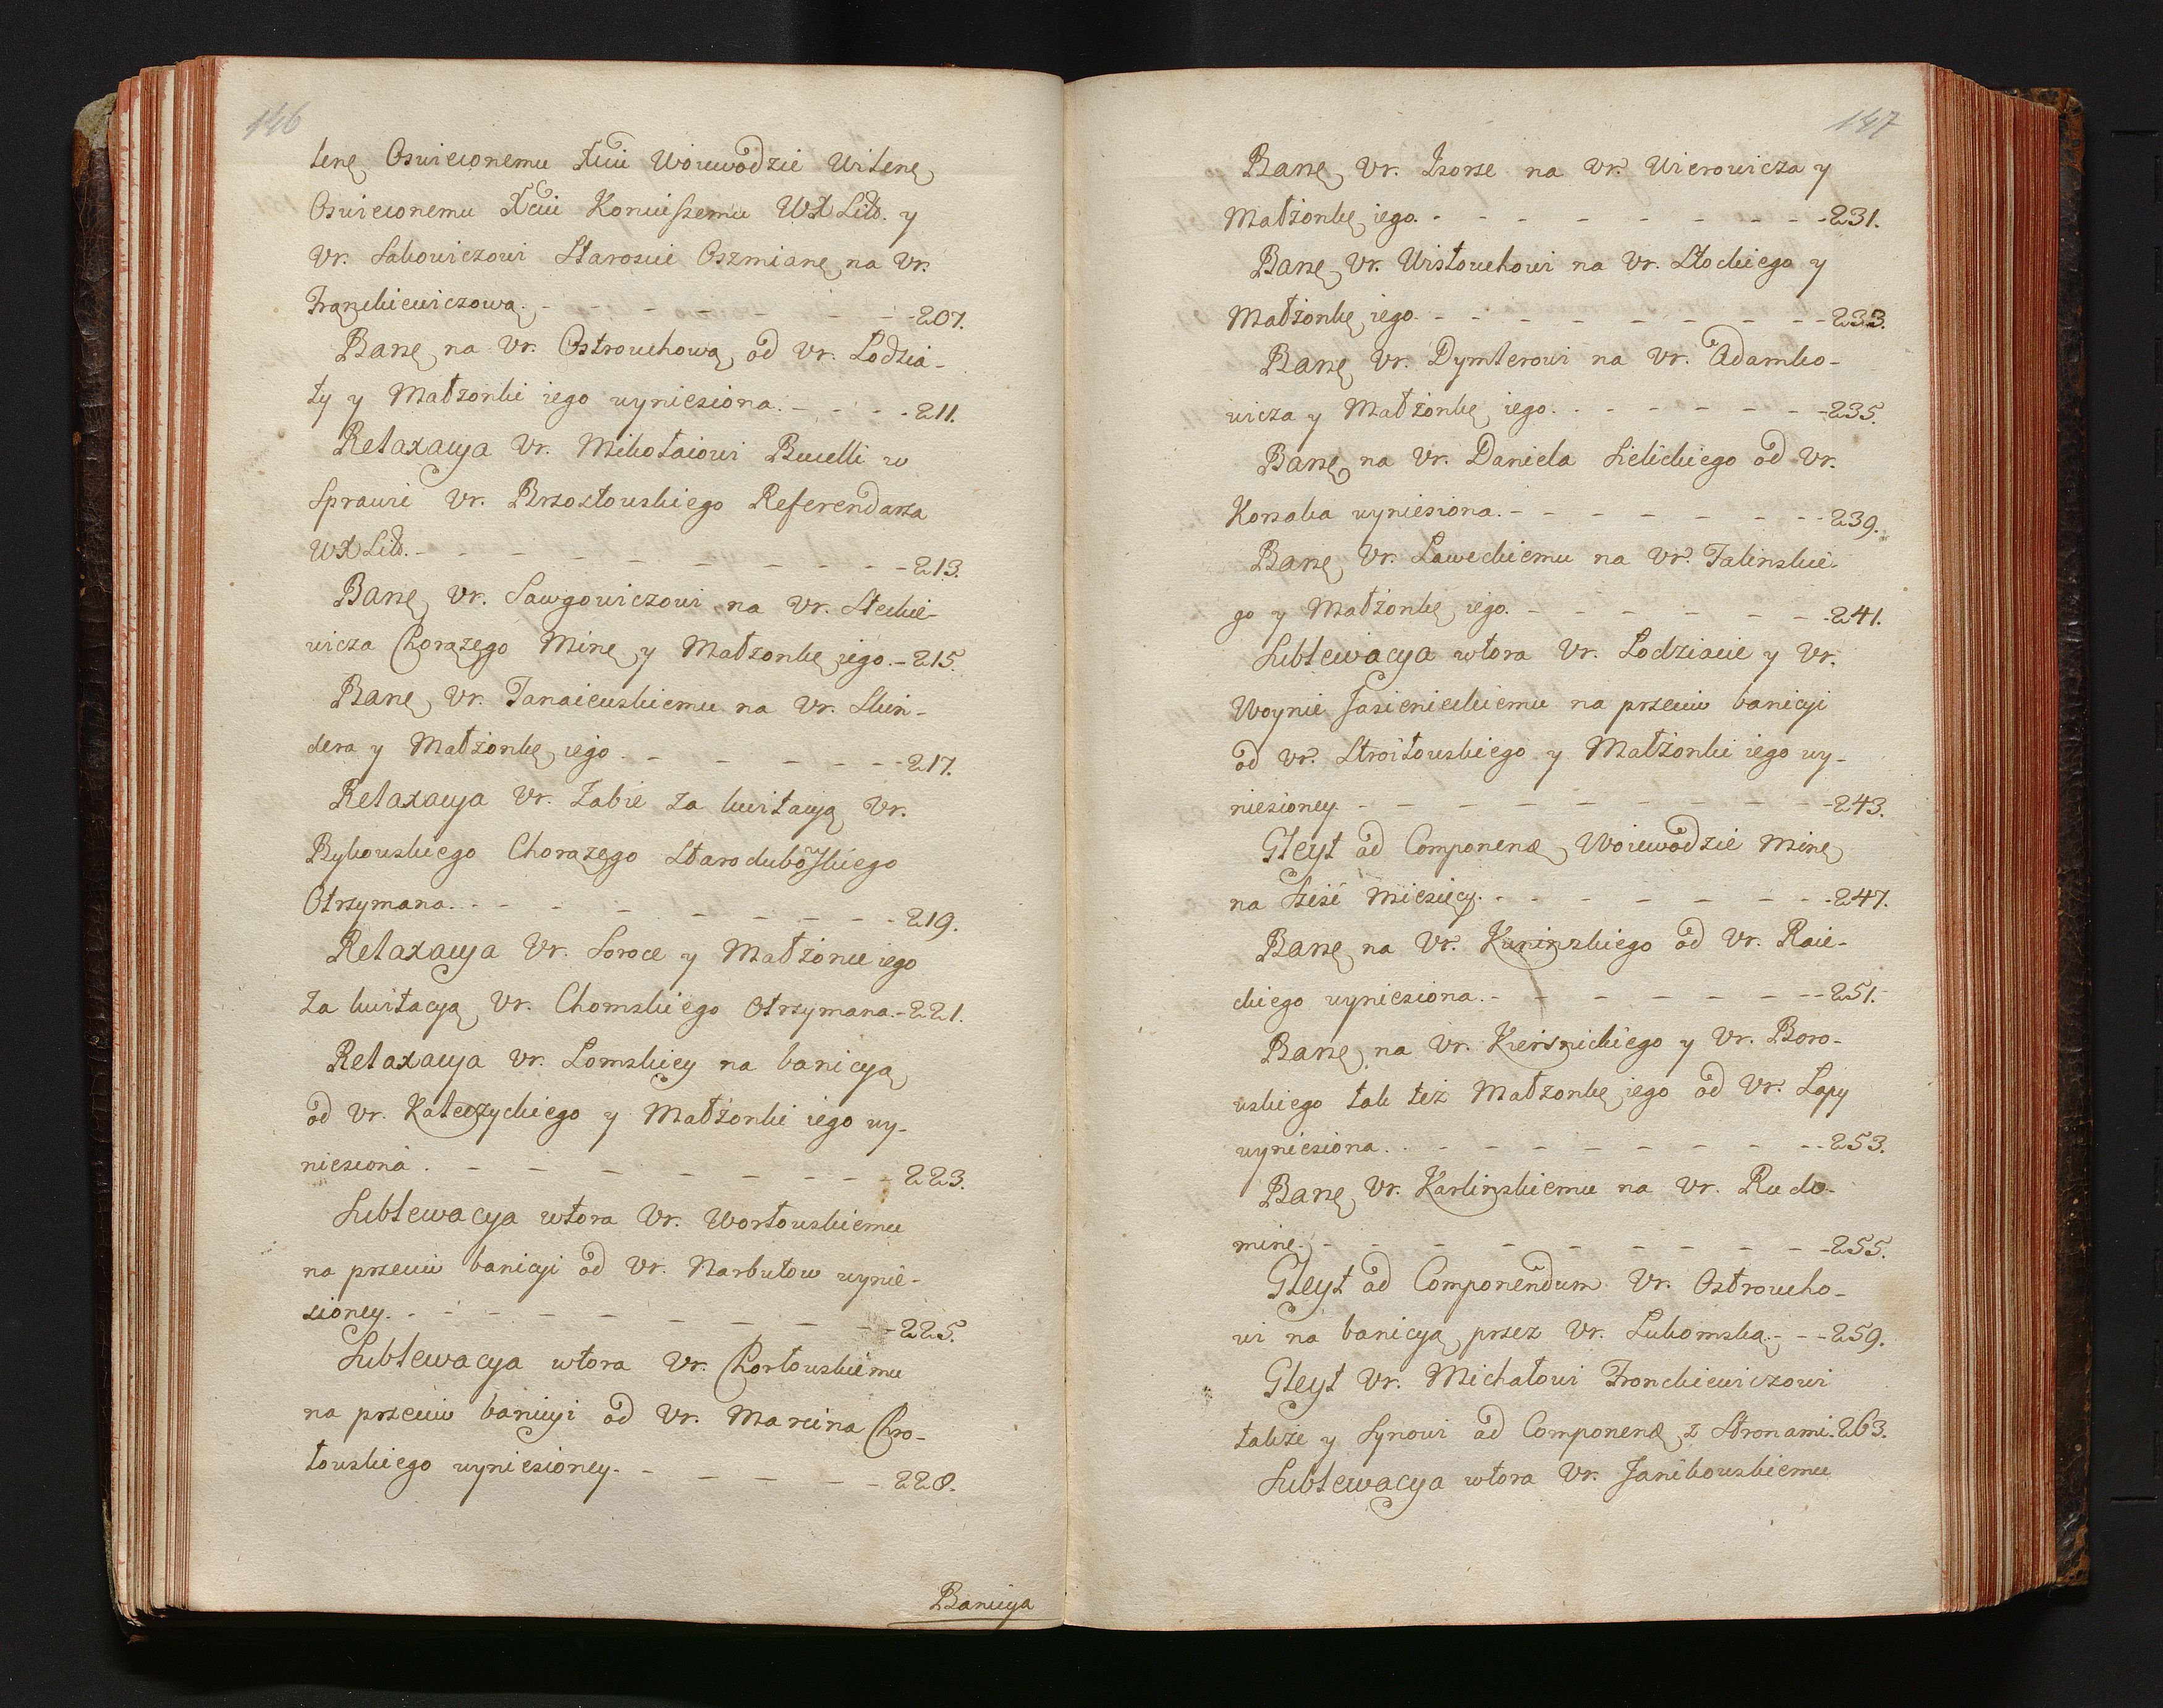 146
tenę Oswieconemu Xciu Woiewodzie Witenę
Oswieconemu Xciu Koniuszemu WXLitt. y
Vr. Sakowiczowi Staroscie Oszmianę na Vr.
Frąnckiewiczową. 207.
Banę na Vr. Ostrouchową od Vr. Lodzia-
ty y Małżonki iego wyniesiona. 211.
Relaxacya Vr. Mikołaiowi Bucelli w
Sprawie Vr. Brzostowskiego Referendarza
WXLitt. 213.
Banę Vr. Sawgowiczowi na Vr. Steckie-
wicza Chorązego Minę y Małżonkę iego. 215.
Banę Vr. Tanaiewskiemu na Vr. Skin-
dera y Małżonkę iego 217.
Relaxacya Vr. Zabie za kwitacyą Vr.
Bykowskiego Chorązego Starodubowskiego
Otrzymana. 219.
Relaxacya Vr. Soroce y Małżonce iego
za kwitacyą Vr. Chomskiego Otrzymana. 221.
Relaxacya Vr. Lomskiey na banicyą
od Vr. Kateczyckiego y Małżonki iego wy-
niesioną. 223.
Sublewacya wtora Vr. Worłowskiemu
na przeciw banicyi od Vr. Narbutow wynie-
sioney. 225.
Sublewacya wtora Vr. Chorłowskiemu
na przeciw banicyi od Vr. Marcina Chro-
łowskiego wyniesioney. 228.
Banicya
147
Banę Vr. Izorze na Vr. Wierowicza y
Małżonkę iego. 231.
Banę Vr. Wisłouchowi na Vr. Słockiego y
Małżonkę iego. 233.
Banę Vr. Dymterowi na Vr. Adamko-
wicza y Małżonkę iego. 235.
Banę na Vr. Daniela Sielickiego od Vr.
Korsaka wyniesiona. 239.
Banę Vr. Laweckiemu na Vr. Talinskie-
go y Małżonkę iego. 241.
Sublewacya wtora Vr. Lodziacie y Vr.
Woynie Jasienieckiemu na przeciw banicyi
od Vr. Stroiłowskiego y Małżonki iego wy-
niesioney. 243.
Gleyt ad Componenð Woiewodzie Minę
na szesć Miesięcy. 247.
Banę na Vr. Kuninskiego od Vr. Raie-
ckiego wyniesiona. 251.
Banę na Vr. Kiersnickiego y Vr. Boro-
wskiego tak też Małżonkę iego od Vr. Łapy
wyniesiona. 253.
Banę Vr. Karlinskiemu na Vr. Rudo-
minę. 255.
Gleyt ad Componendum Vr. Ostroucho-
wi na banicyą przez Vr. Lukomską. 259.
Gleyt Vr. Michałowi Fronckiewiczowi
także y Synowi ad Componenð z Stronami. 263.
Sublewacya wtora Vr. Janikowskiemu